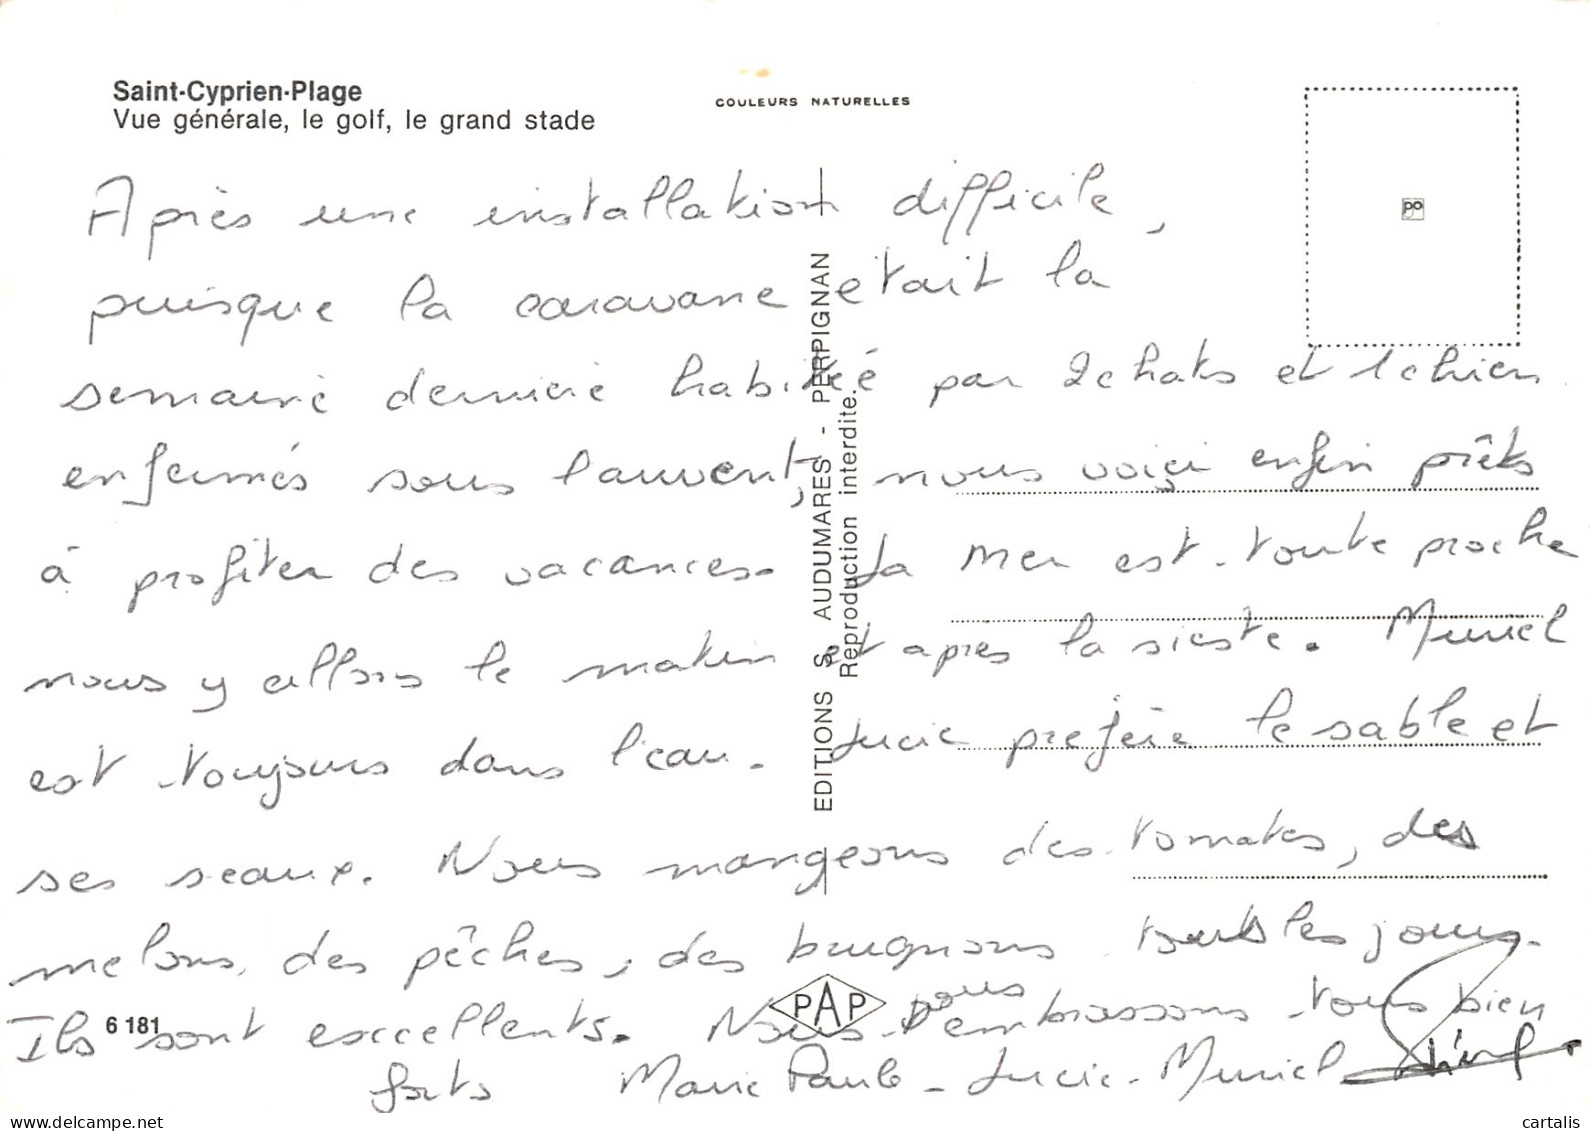 Saint-Cyprien-Plage
Vue générale, le golf, le grand stade
COULEURS NATURELLES
po
Après une installation difficile,
puisque la caravane était la
semaine dernière habitée par 2 chats et 1 chien
enfermés sous l'auvent, nous voici enfin prêts
à profiter des vacances. La mer est toute proche
nous y allons le matin et après la sieste. Muriel
est toujours dans l'eau. Lucie préfère le sable et
ses seaux. Nous mangeons des tomates, des
melons, des pêches, des brugnons tous les jours.
Ils sont excellents. Nous vous embrassons tous bien
forts Marie Paule - Lucie - Muriel
EDITIONS S. AUDUMARES - PERPIGNAN
Reproduction interdite.
PAP
6 181
delcampe.net
cartalis